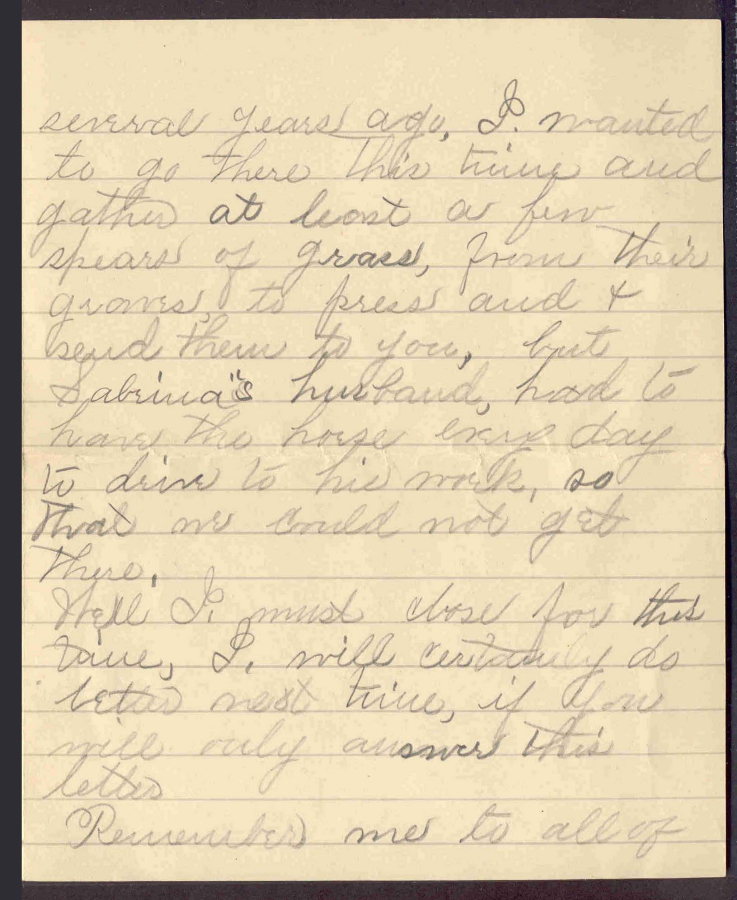 several years ago, I. wanted
to go there this time and
gather at least a few
spears of grass, from their
graves, to press and &
send them to you, but
Sabrina"s husband, had to
have the horse every day
to drive to his work, so
that we could not get
there.
Well I. must close for this
time, I. will certainly do
better next time, if you
will only answer this
letter
Remember me to all of